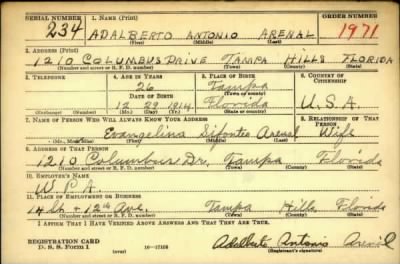 SERIAL NUMBER 1. NAME (Print) ORDER NUMBER
234 ADALBERTO ANTONIO ARENAL 1971
(First) (Middle) (Last)
2. ADDRESS (Print)
1210 COLUMBUS DRIVE TAMPA HILLS FLORIDA
(Number and street or R. F. D. number) (Town) (County) (State)
3. TELEPHONE 4. AGE IN YEARS 5. PLACE OF BIRTH 6. COUNTRY OF CITIZENSHIP
26 Tampa
DATE OF BIRTH (Town or county)
12 29 1914 Florida U.S.A.
(Exchange) (Number) (Mo.) (Day) (Yr.) (State or country)
7. NAME OF PERSON WHO WILL ALWAYS KNOW YOUR ADDRESS 8. RELATIONSHIP OF THAT PERSON
Evangelina Sifontes Arenal Wife
(First) (Middle) (Last)
9. ADDRESS OF THAT PERSON
1210 Columbus Dr. Tampa Florida
(Number and street or R. F. D. number) (Town) (County) (State)
10. EMPLOYER'S NAME
W.P.A.
11. PLACE OF EMPLOYMENT OR BUSINESS
14 St + 12th Ave. Tampa Hills Florida
(Number and street or R. F. D. number) (Town) (County) (State)
I AFFIRM THAT I HAVE VERIFIED ABOVE ANSWERS AND THAT THEY ARE TRUE.
REGISTRATION CARD
D. S. S. Form 1 (over) 16—17105 Adalberto Antonio Arenal
(Registrant's signature)